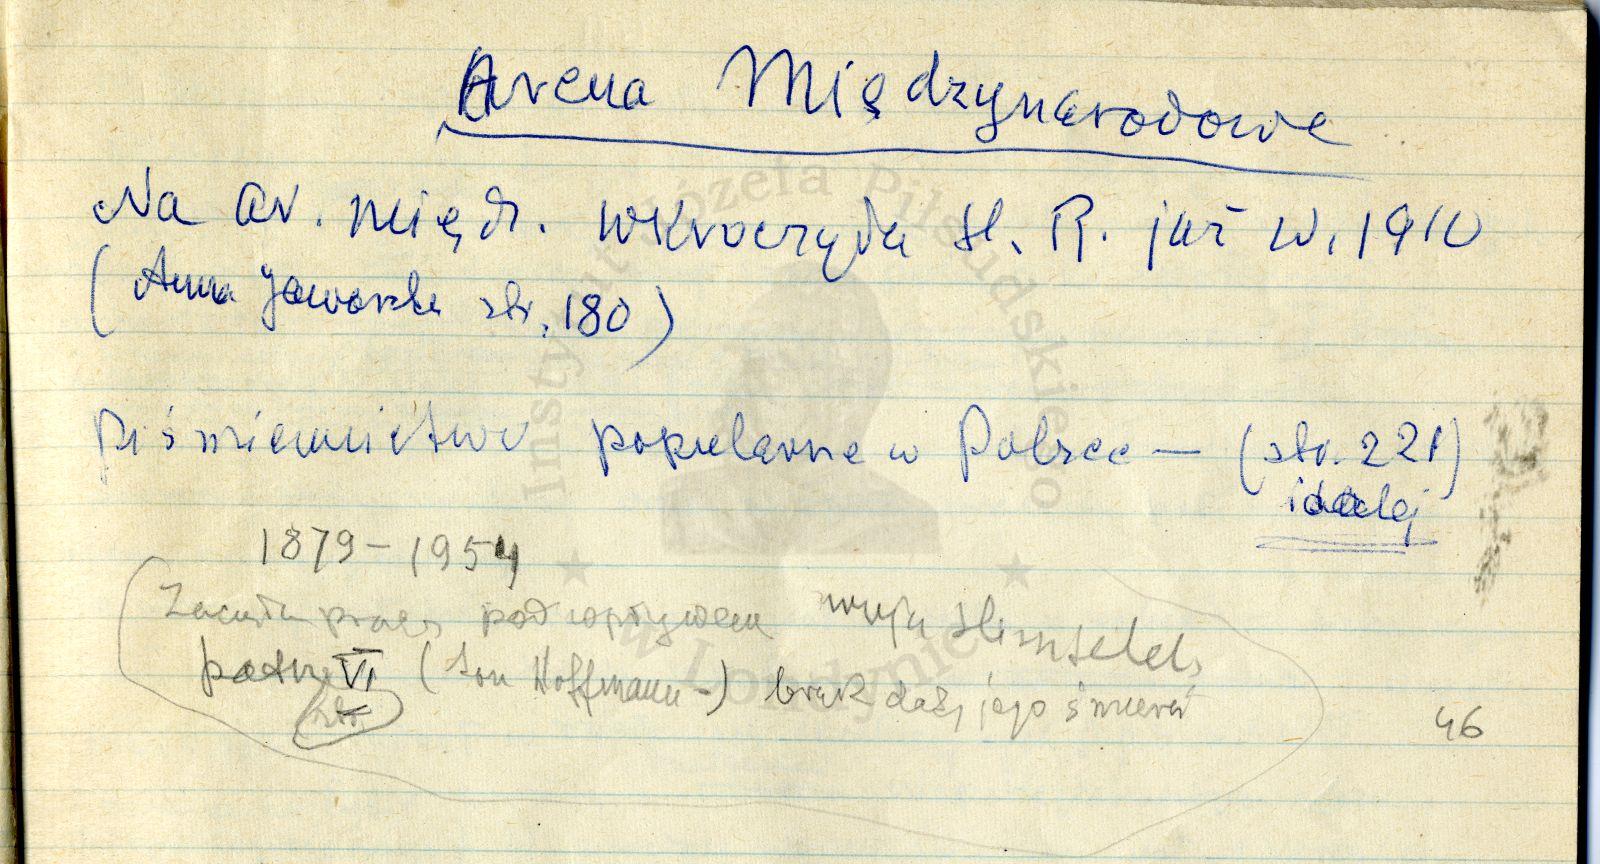 Arena Międzynarodowa
Na ar. międz. wkroczyła H. R. już w. 1910
(Anna Jaworska str. 180)
piśmiennictwo popularne w Polsce — (str. 221)
i dalej
1879 – 1954
pod wpływem wuja
patrz VI (Hoffmann -) brak daty jego śmierci
str.
46
Instytut Józefa Piłsudskiego
w Londynie